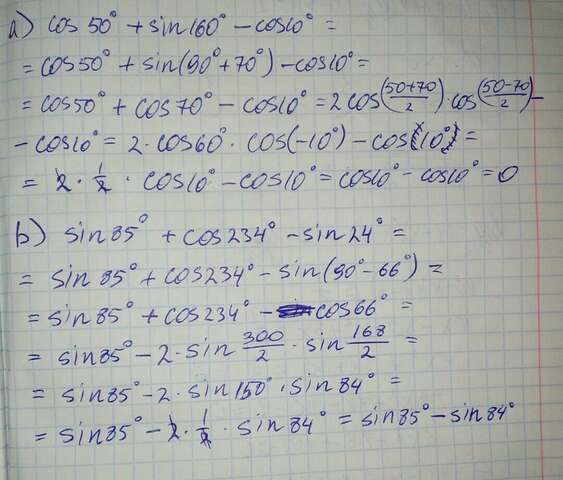 a) cos 50° + sin 160° - cos 10° =
= cos 50° + sin(90° + 70°) - cos 10° =
= cos 50° + cos 70° - cos 10° = 2 cos((50+70)/2) cos((50-70)/2) -
- cos 10° = 2 · cos 60° · cos(-10°) - cos 10° =
= 2 · 1/2 · cos 10° - cos 10° = cos 10° - cos 10° = 0
b) sin 85° + cos 234° - sin 24° =
= sin 85° + cos 234° - sin(90° - 66°) =
= sin 85° + cos 234° - cos 66° =
= sin 85° - 2 · sin 300/2 · sin 168/2 =
= sin 85° - 2 · sin 150° · sin 84° =
= sin 85° - 2 · 1/2 · sin 84° = sin 85° - sin 84°